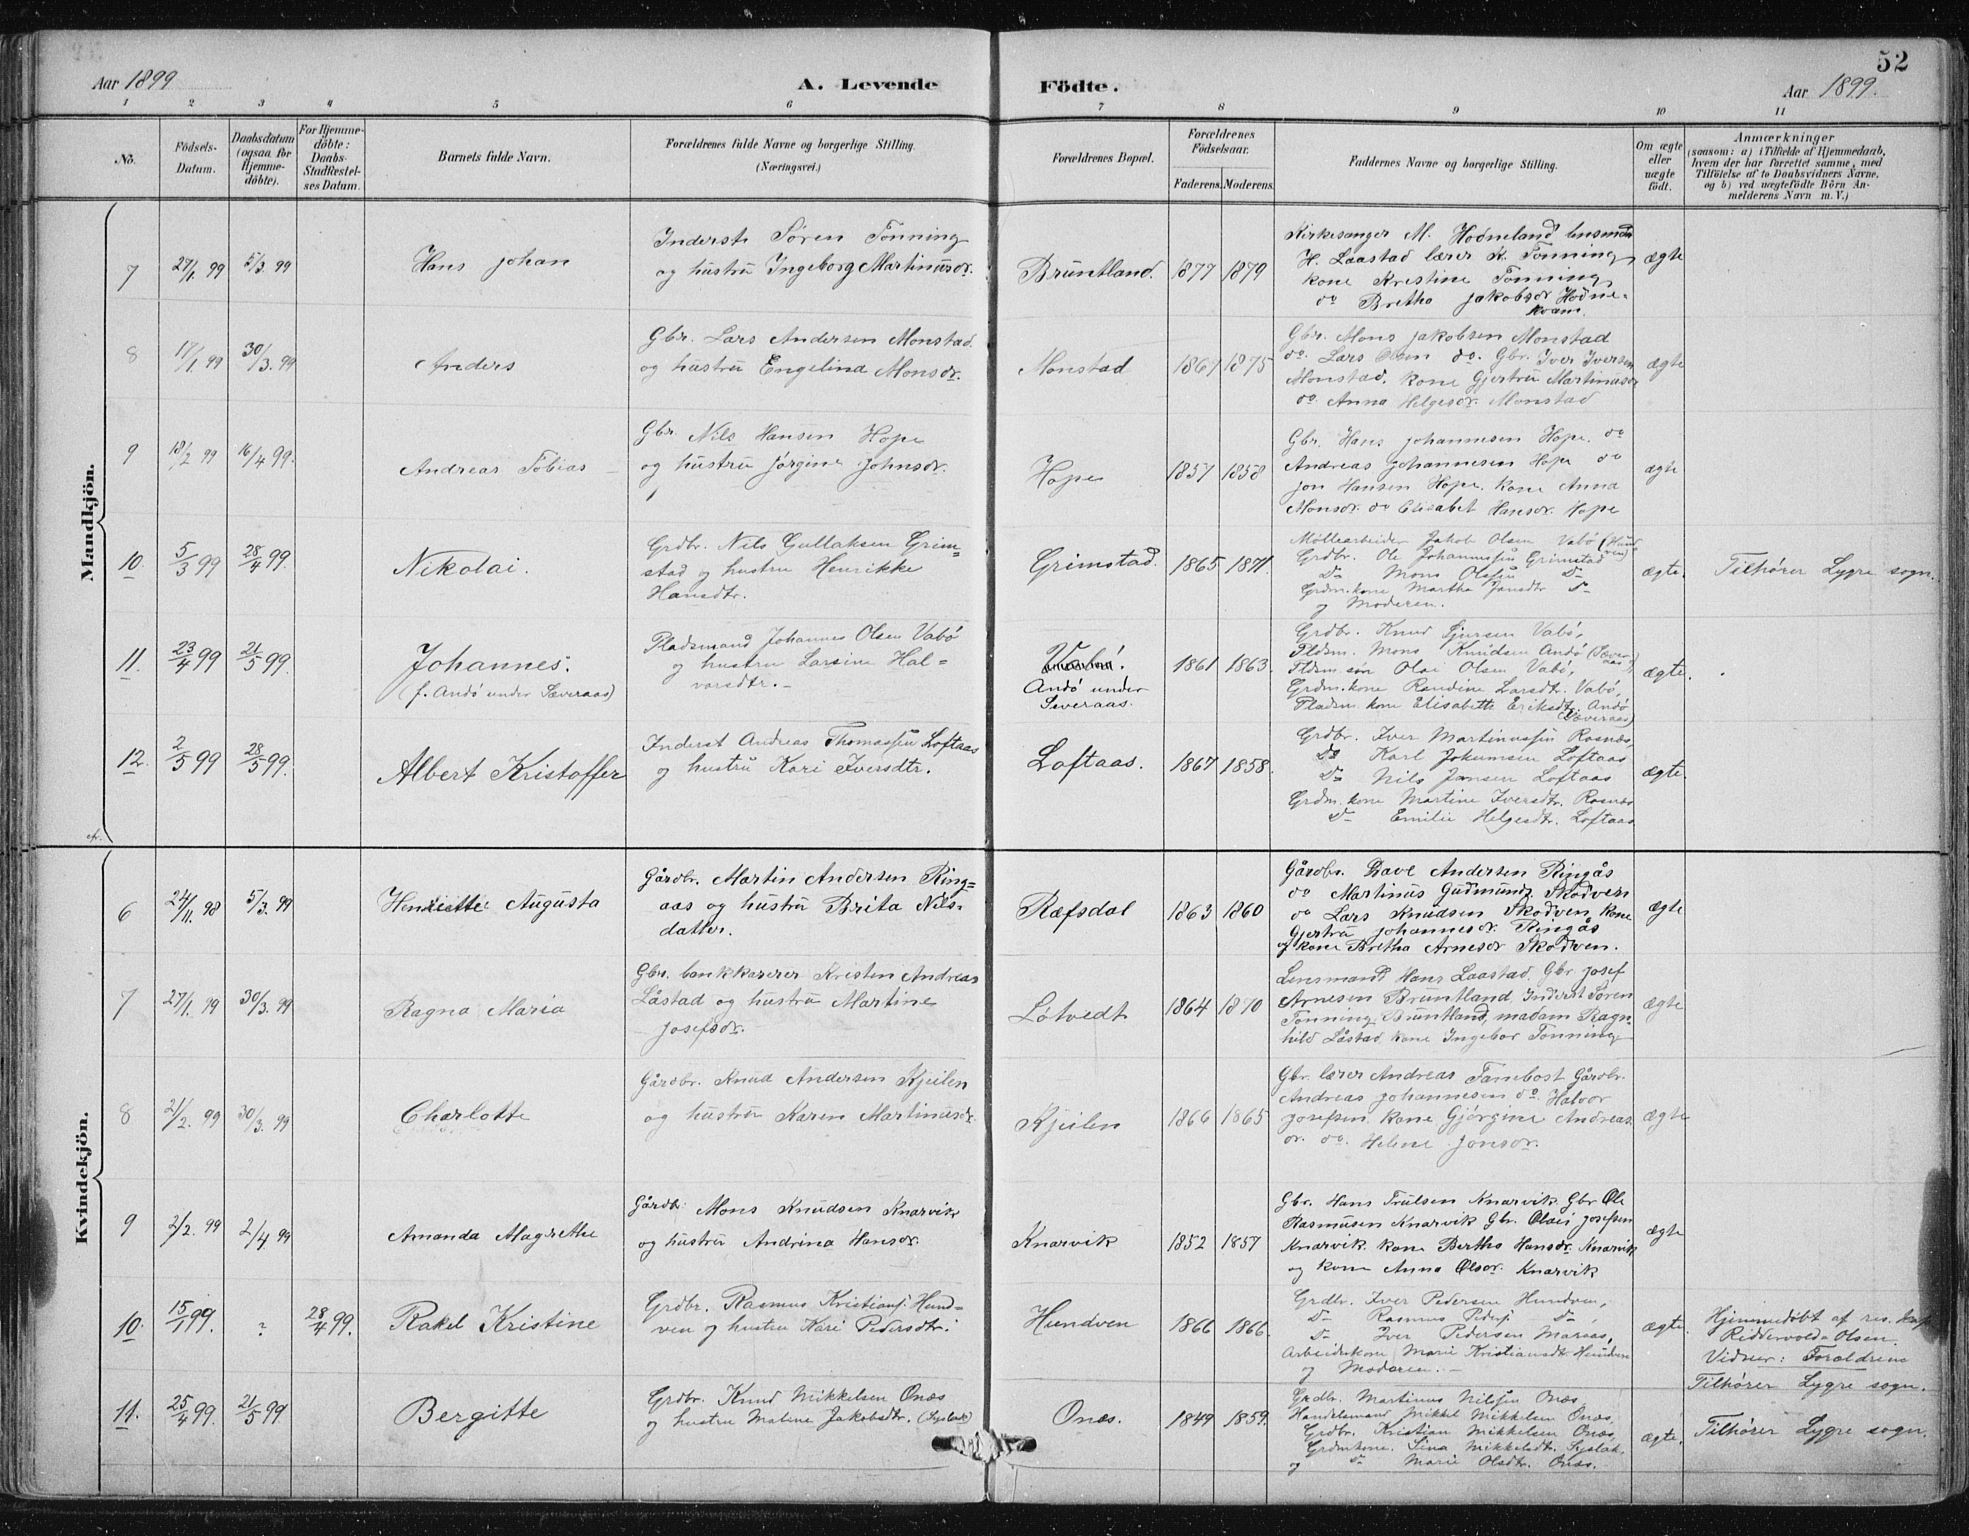 52
Aar 1899 A. Levende Födte. Aar 1899.
1 2 3 4 5 6 7 8 9 10 11
No.
Födsels-
Datum.
Daabsdatum
(ogsaa for
Hjemme-
döbte).
For Hjemme-
döbte:
Daabs-
Stadfæstel-
ses Datum.
Barnets fulde Navn.
Forældrenes fulde Navne og borgerlige Stilling.
(Næringsvei.)
Forældrenes Bopæl.
Forældrenes
Födselsaar.
Faderens. Moderens.
Faddernes Navne og borgerlige Stilling.
Om ægte
eller
uægte
födt.
Anmærkninger
(saasom: a) i Tilfælde af Hjemmedaab,
hvem der har forrettet samme, med
Tilföielse af to Daabsvidners Navne,
og b) ved uægtefödte Börn An-
melderens Navn m. V.)
Mandkjön.
7 27/1 99 5/3 99 Hans Johan
Inderst Søren Tonning
og hustru Ingeborg Martinusdr.
Bruntland. 1877 1879
Kirkesanger M. Hodneland lensmand
H. Laastad lærer K. Tonning
kone Kristine Tonning
do Bretha Jakobsdr Hodne-
kvam.
ægte
8 17/1 99 30/3. 99 Anders
Gbr. Lars Andersen Monstad
og hustru Engelina Monsdr.
Monstad 1867 1875
Gbr. Mons Jakobsen Monstad
do. Lars Olsen do. Gbr. Iver Iversen
Monstad. kone Gjertru Martinusdr
do. Anna Helgesdr. Monstad
ægte
9 18/2 99 16/4 99. Andreas Tobias
Gbr. Nils Hansen Hope
og hustru Jørgine Johnsdr.
Hope 1857 1858
Gbr. Hans Johannesen Hope. do
Andreas Johannesen Hope do
Jon Hansen Hope. kone Anna
Monsdr. do Elisabet Hansdr. Hope
ægte
10. 5/3 99 28/4 99. Nikolai.
Grdbr. Nils Gullaksen Grim=
stad og hustru Henrikke
Hansdtr.
Grimstad. 1865 1871.
Møllearbeider Jakob Olsen Vabö (Hund
ven)
Grdbr. Ole Johannessen Grimstad
Do Mons Olsen Do
Grdm. kone Martha Jansdtr Do
og Moderen.
ægte.
Tilhører Lygre sogn.
11. 23/4 99 21/5 99. Johannes.
(f. Andö under Sæveraas)
Pladsmand Johannes Olsen Vabö
og hustru Larsine Hal=
vorsdtr.
Vabö.
Andö under
Severaas.
1861 1863.
Grdbr. Knud Sjursen Vabö,
Pldsm. Mons Knudsen Andö (Sæver
aas)
Pldsm. søn Olai Olsen Vabö,
Grdm. kone Randine Larsdtr. Vabö,
Pladsm. kone Elisabeth Eriksdtr. Andö
(Sæveraas)
ægte.
12. 2/5 99 28/5 99. Albert Kristoffer
Inderst Andreas Thomassen Loftaas
og hustru Kari Iversdtr.
Loftaas. 1867 1858.
Grdbr. Iver Martinussen Rosnæs,
Do Karl Johansen Loftaas
Do Nils Jansen Loftaas
Grdm. kone Martine Iversdtr. Rosnæs
Do Emilie Helgesdtr. Loftaas
ægte.
Kvindekjön.
6 24/11. 98 5/3. 99 Henriette Augusta
Gårdbr. Martin Andersen Ring=
aas og hustru Brita Nils-
datter.
Ræfsdal 1863 1860
Gårdbr. Dave Andersen Ringås
do Martinus Gudmunds. Skodven
do Lars Knudsen Skodven, kone
Gjertru Johannesdr. Ringås
og kone Bretha Arnesdr Skodven.
ægte
7 27/1. 99 30/3. 99 Ragna Maria
Gbr. bankkaserer Kristen Andreas
Låstad og hustru Martine
Josefsdr.
Løtvedt 1864 1870
Lensmand Hans Laastad. Gbr Josef
Arnesen Bruntland, Inderst Søren
Tonning Bruntland, madam Ragn-
hild Låstad kone Ingebor Tonning
ægte
8 21/2. 99 30/3. 99 Charlotte
Gårdbr. Knud Andersen Kjeilen
og hustru Karen Martinusdr.
Kjeilen 1866 1865
Gbr. lærer Andreas Tanebost Gårdbr.
Andreas Johannesen do. Halvor
Josefsen kone Gjørgine Andreas
dr. do. Helene Jonsdr.
ægte
9 2/2. 99 2/4 99 Amanda Magrethe
Gårdbr. Mons Knudsen Knarvik
og hustru Andrina Hansdr.
Knarvik 1852 1857
Gbr. Hans Trulsen Knarvik Gbr Ole
Rasmusen Knarvik Gbr. Olai Josefsen
Knarvik. kone Bertha Hansdr. Knarvik
og kone Anna Olsdr. Knarvik
ægte
10. 15/1 99. ? 28/4 99. Rakel Kristine
Grdbr. Rasmus Kristians. Hund=
ven og hustru Kari Pedersdtr.
Hundven 1866 1866.
Grdbr. Iver Pedersen Hundven,
Do Rasmus Peders. Do,
Do Iver Pedersen Maraas,
Arbeiderkone Marie Kristiansdtr Hundven
og Moderen.
ægte.
Hjemmedöbt af res. kap.
Riddervold Olsen.
Vidner: Foraldrene
Tilhører Lygre sogn.
11. 25/4 99. 21/5 99 Bergitte
Grdbr. Knud Mikkelsen Onæs
og hustru Maline Jakobsdtr. (Syslak)
Onæs. 1849 1859.
Grdbr. Martinus Nilsen Onæs
Handelsmand Mikkel Mikkelsen Onæs,
Grdbr. Kristian Mikkelsen Onæs,
Grdmkone. Sina Mikkelsdtr. Syslak,
og Do Marie Olsdtr. Onæs.
ægte.
Tilhører Lygre sogn.